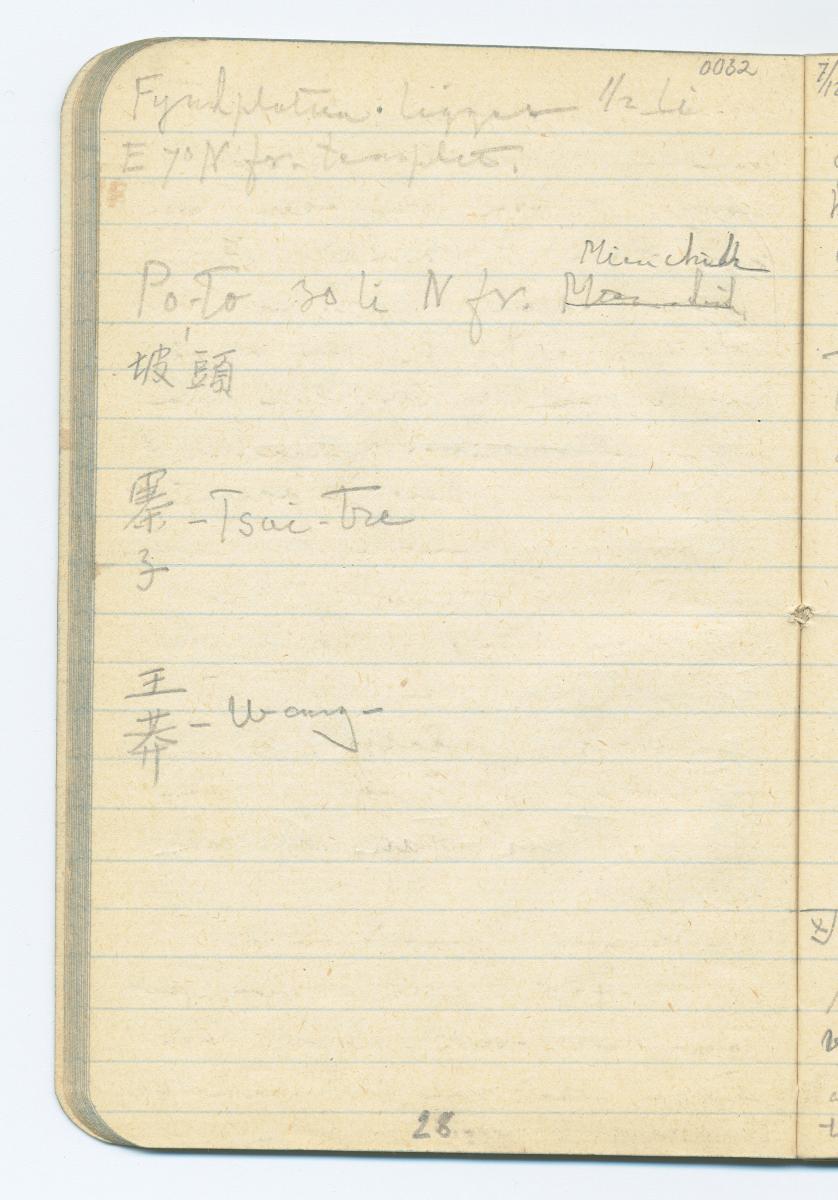 0032
Fyndplatsen. Ligger 1/2 Li
E 70 N fr. templet.
Mien chih
Po-To 30 li N fr.
坡頭
寨子 - Tsai-Tze
王莽 - Wang -
28